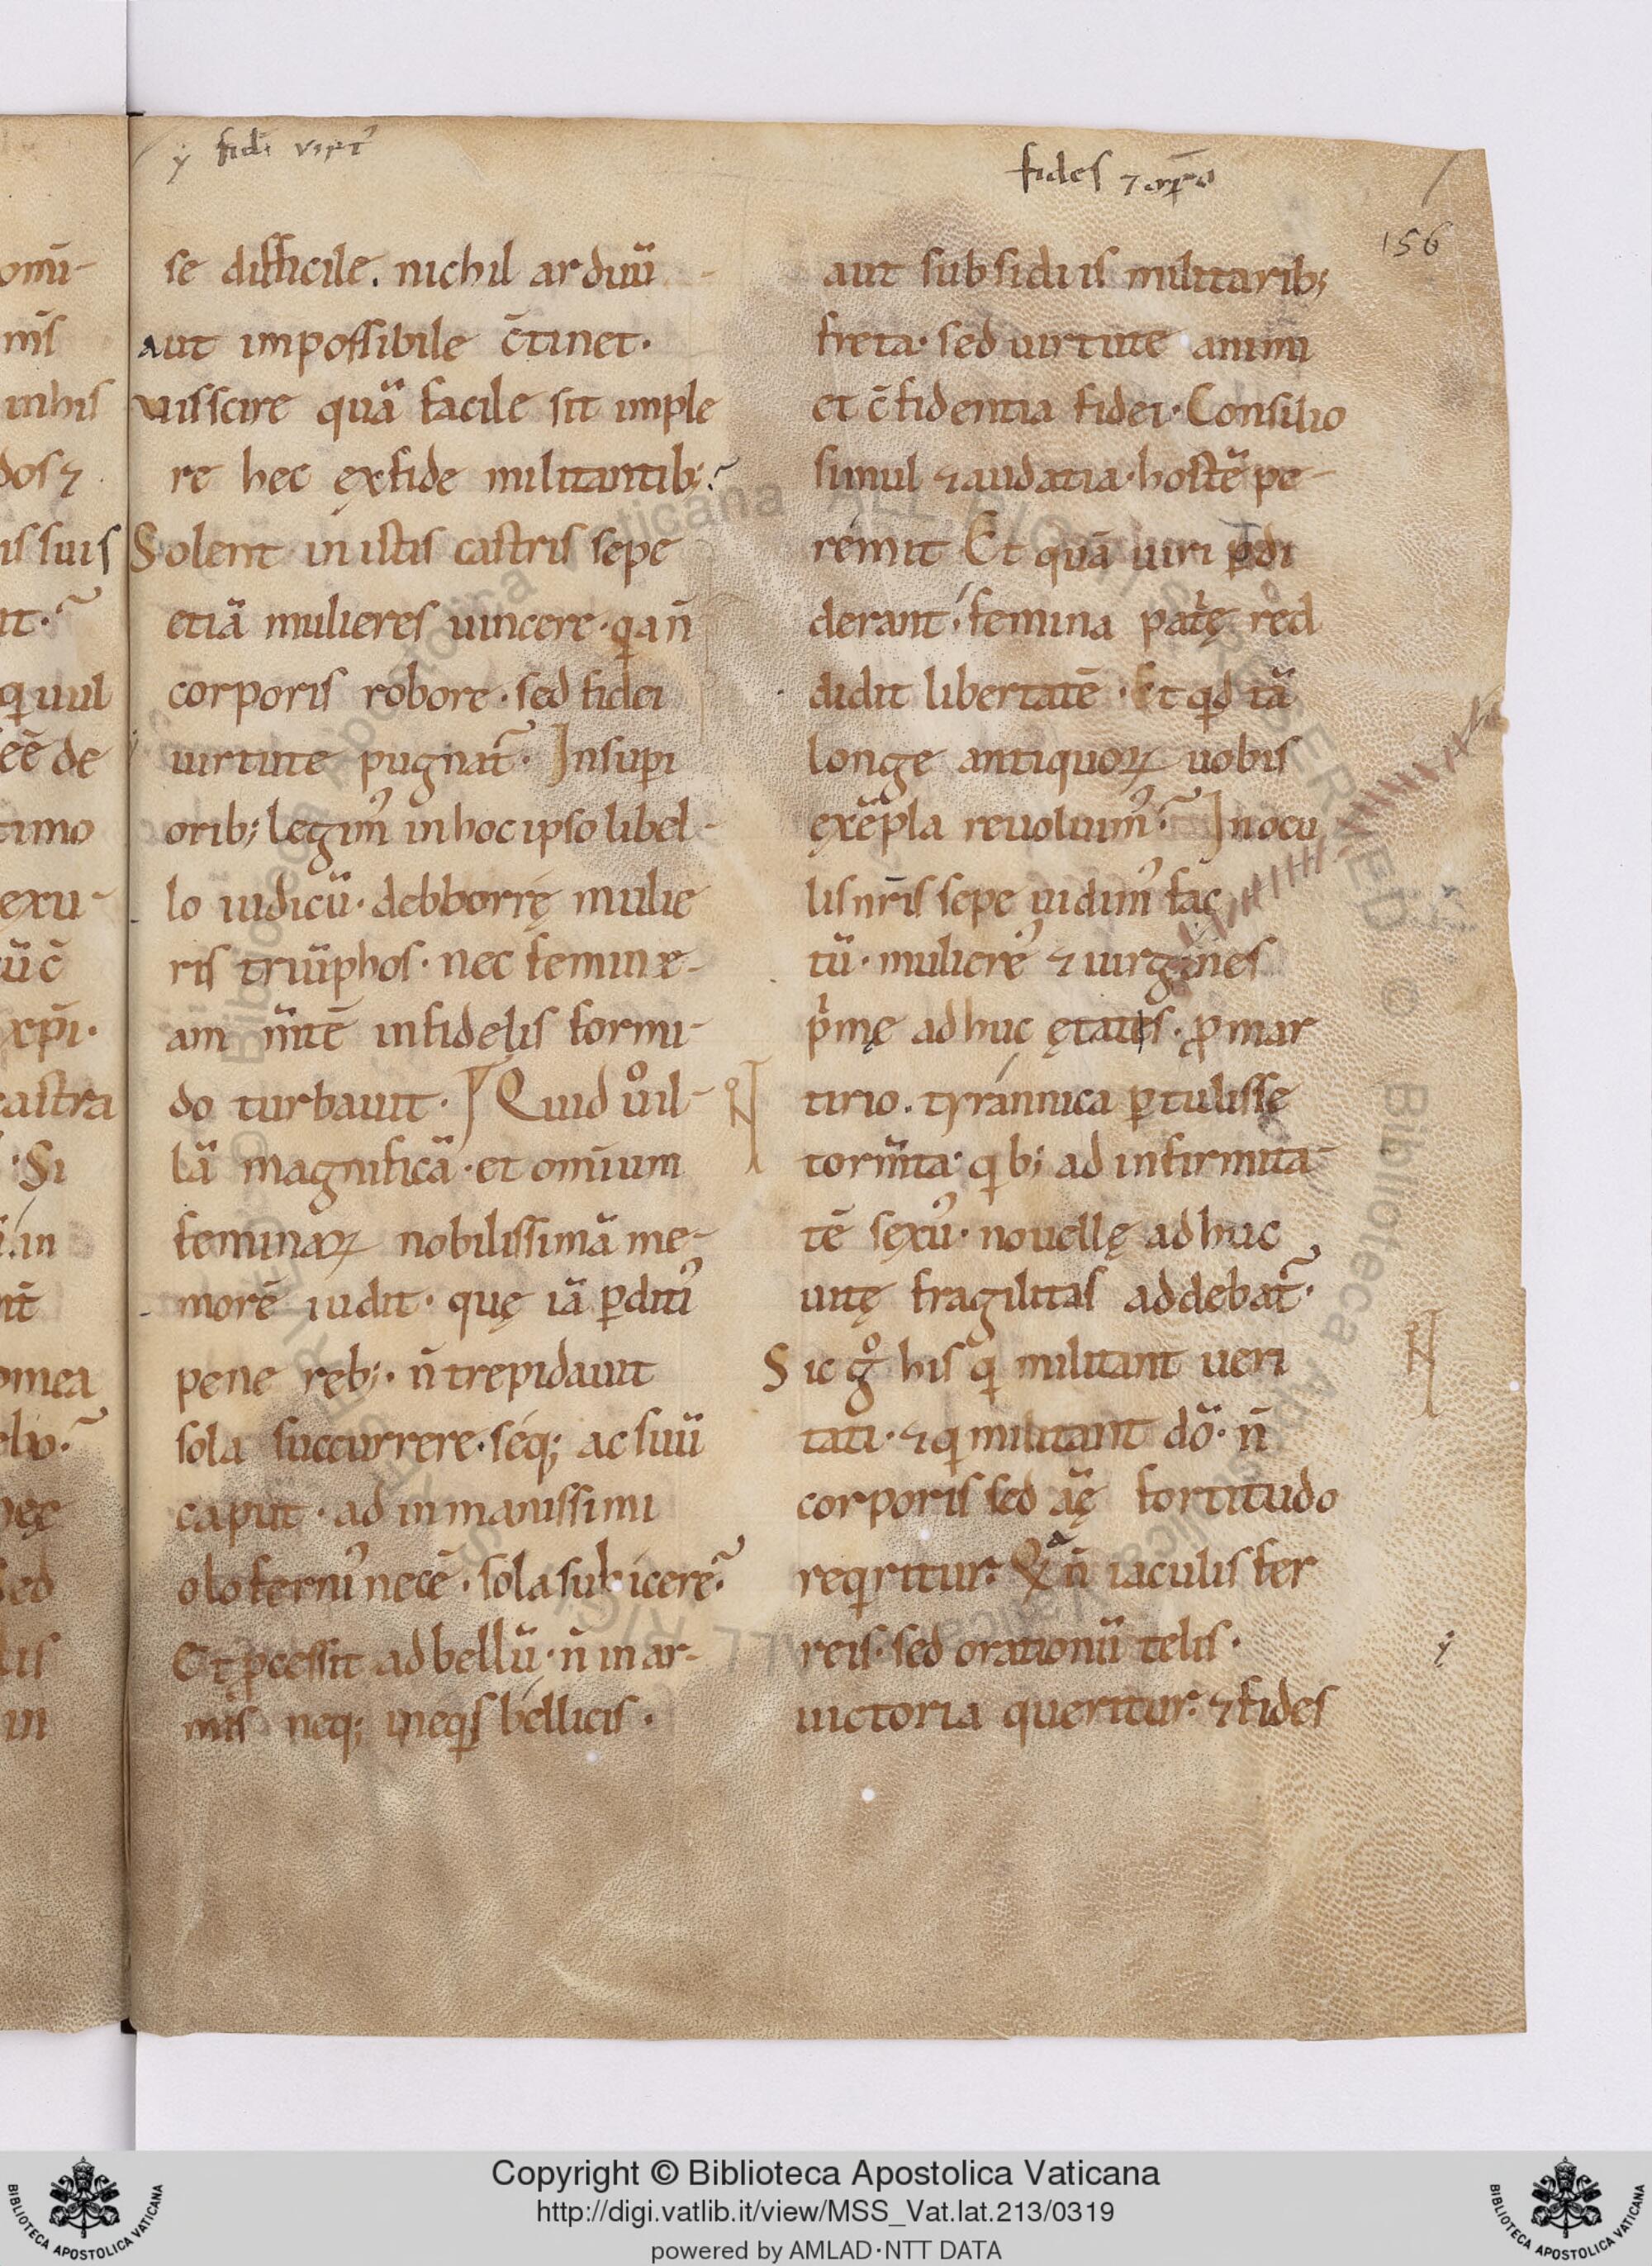 ẏ fidi virt᾽
fides ⁊ or̄o
156
se difficile. nichil arduū
aut impossibile c̄tinet·
vis scire quā facile sit imple
re hec ęx fide militantib;?
Solent in istis castris sepe
etiā mulieres uincere· q̨a n̄
corporis robore· sed fidei
uirtute pugnat᷑· In supi
orib; legim᾽ in hoc ipso libel-
lo iudicū· debborrę mulie
ris triūphos· nec femine-
am m̄tē infidelis formi-
do turbauit· Quid uͦ il-
lā magnificā· et omīum
feminaꝝ nobilissimā me-
morē iudit· quę iā ꝑditi᾽
pene reb;· n̄ trepidauit
sola succurrere· seq; ac suū
caput· ad inmanissimi
oloferni᾽ necē· sola subicere?
Et ꝓcessit ad bellū· n̄ in ar-
mis neq; in eq̨s bellicis·
aut subsidiis militarib;
freta· sed uirtute animi
et c̄fidentia fidei· Consilio
simul ⁊ audatia· hostē pe-
remit Et quā uiri ꝑdi
derant· femina patͥę red
didit libertatē· Et qd tā
longe antiquoꝝ uobis
ęxēpla reuoluim᾽? In ocu
lis nr̄is sepe uidim᾽ fac
tū· muliere᾽ ⁊ uirgines
pͥmę ad huc ętatis· ꝓ mar
tirio. tyrannica ꝑtulisse
torm̄ta· q̨b; ad infirmita-
tē sexu᾽· nouellę ad huc
uitę fragilitas addebat᷑·
Sic gͦ his q̨ militant ueri
tati· ⁊ q̨ militant dō· n̄
corporis sed āę fortitudo
req̨ritur· Qͣ n̄ iaculis fer
reis· sed orationū telis·
uictoria queritur· ⁊ fides
omī-
nīs
in his
dos ⁊
is suis
it·?
q̨ uul
eē de
timo
exu-
ūc̄
xp̄i·
castra
· Si
in
nt̄
omea
olio·?
sed
lis
in
Copyright © Biblioteca Apostolica Vaticana
http://digi.vatlib.it/view/MSS_Vat.lat.213/0319
powered by AMLAD·NTT DATA
BIBLIOTECA APOSTOLICA VATICANA
BIBLIOTECA APOSTOLICA VATICANA